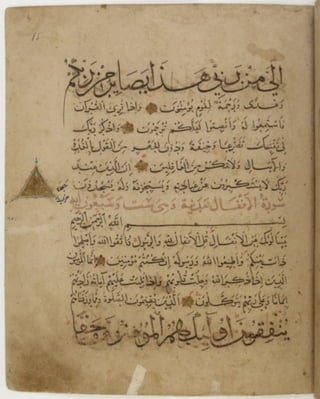 إلي من ربي هذا بصائر من ربكم
وهدى ورحمة لقوم يؤمنون وإذا قرئ القرآن
فاستمعوا له وأنصتوا لعلكم ترحمون واذكر ربك
في نفسك تضرعا وخيفة ودون الجهر من القول بالغدو
والآصال ولا تكن من الغافلين إن الذين عند
ربك لا يستكبرون عن عبادته ويسبحونه وله يسجدون
سجدة
سورة الأنفال مدنية وهي ست وسبعون
بسم الله الرحمن الرحيم
يسألونك عن الأنفال قل الأنفال لله والرسول فاتقوا الله وأصلحوا
ذات بينكم وأطيعوا الله ورسوله إن كنتم مؤمنين إنما المؤمنون
الذين إذا ذكر الله وجلت قلوبهم وإذا تليت عليهم آياته زادتهم
إيمانا وعلى ربهم يتوكلون الذين يقيمون الصلاة ومما رزقناهم
ينفقون أولئك هم المؤمنون حقا